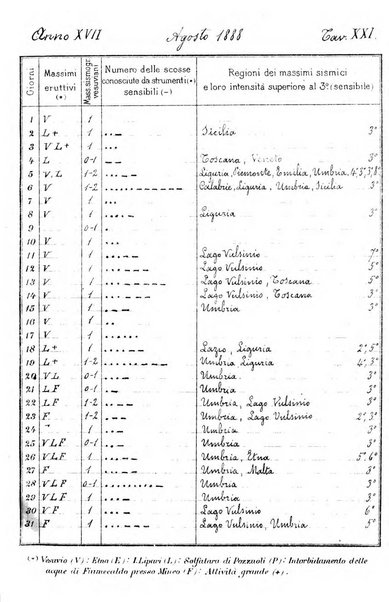 Anno XVII Agosto 1888 Tav. XXI.
Giorni Massimi eruttivi (*) Mass. sismogr. vesuviani Numero delle scosse conosciute da strumenti (•) sensibili (–) Regioni dei massimi sismici e loro intensità superiore al 3º (sensibile)
1 V 1 . . .
2 L+ 1 . . – Sicilia 3º
3 V L+ 1 . . .
4 L 0-1 . . – – Toscana, Veneto 3º
5 V.L 1-2 Liguria, Piemonte, Emilia, Umbria, 4º, 3º, 3º, 8º
6 V 1-2 Calabrie, Liguria, Umbria, Sicilia 3º
7 V 1 . . .
8 V 1 Liguria 3º
9 0-1 .
10 V 1 . . .
11 V 1 Lago Vulsinio 7º
12 V 1 Lago Vulsinio 5º
13 V 1 Lago Vulsinio, Toscana 5º
14 V 1 Lago Vulsinio, Toscana 3º
15 V 1 Umbria 3º
16 V 1 . .
17 V 1 . . .
18 L+ 1 Lazio, Liguria 2º, 5º
19 L+ 1-2 Umbria Liguria 4º, 3º
20 VL 0-1 Umbria 3º
21 LF 0-1 Umbria 3º
22 LF 1-2 Umbria, Lago Vulsinio 3º
23 F 1-2 Umbria, Lago Vulsinio 2º, 3º
24 1 Umbria 3º
25 VLF 0-1 Umbria 3º
26 VLF 1 Umbria, Etna 5º, 6º
27 F 1 Umbria, Malta 3º
28 VLF 0-1 Umbria 3º
29 VLF 1 Umbria 3º
30 VF 1 Lago Vulsinio 6º
31 F 1 Lago Vulsinio, Umbria 5º
(*) Vesuvio (V): Etna (E): I. Lipari (L): Solfatara di Pozzuoli (P): Intorbidamento delle
acque di Fiumecaldo presso Mineo (F): Attività grande (+).